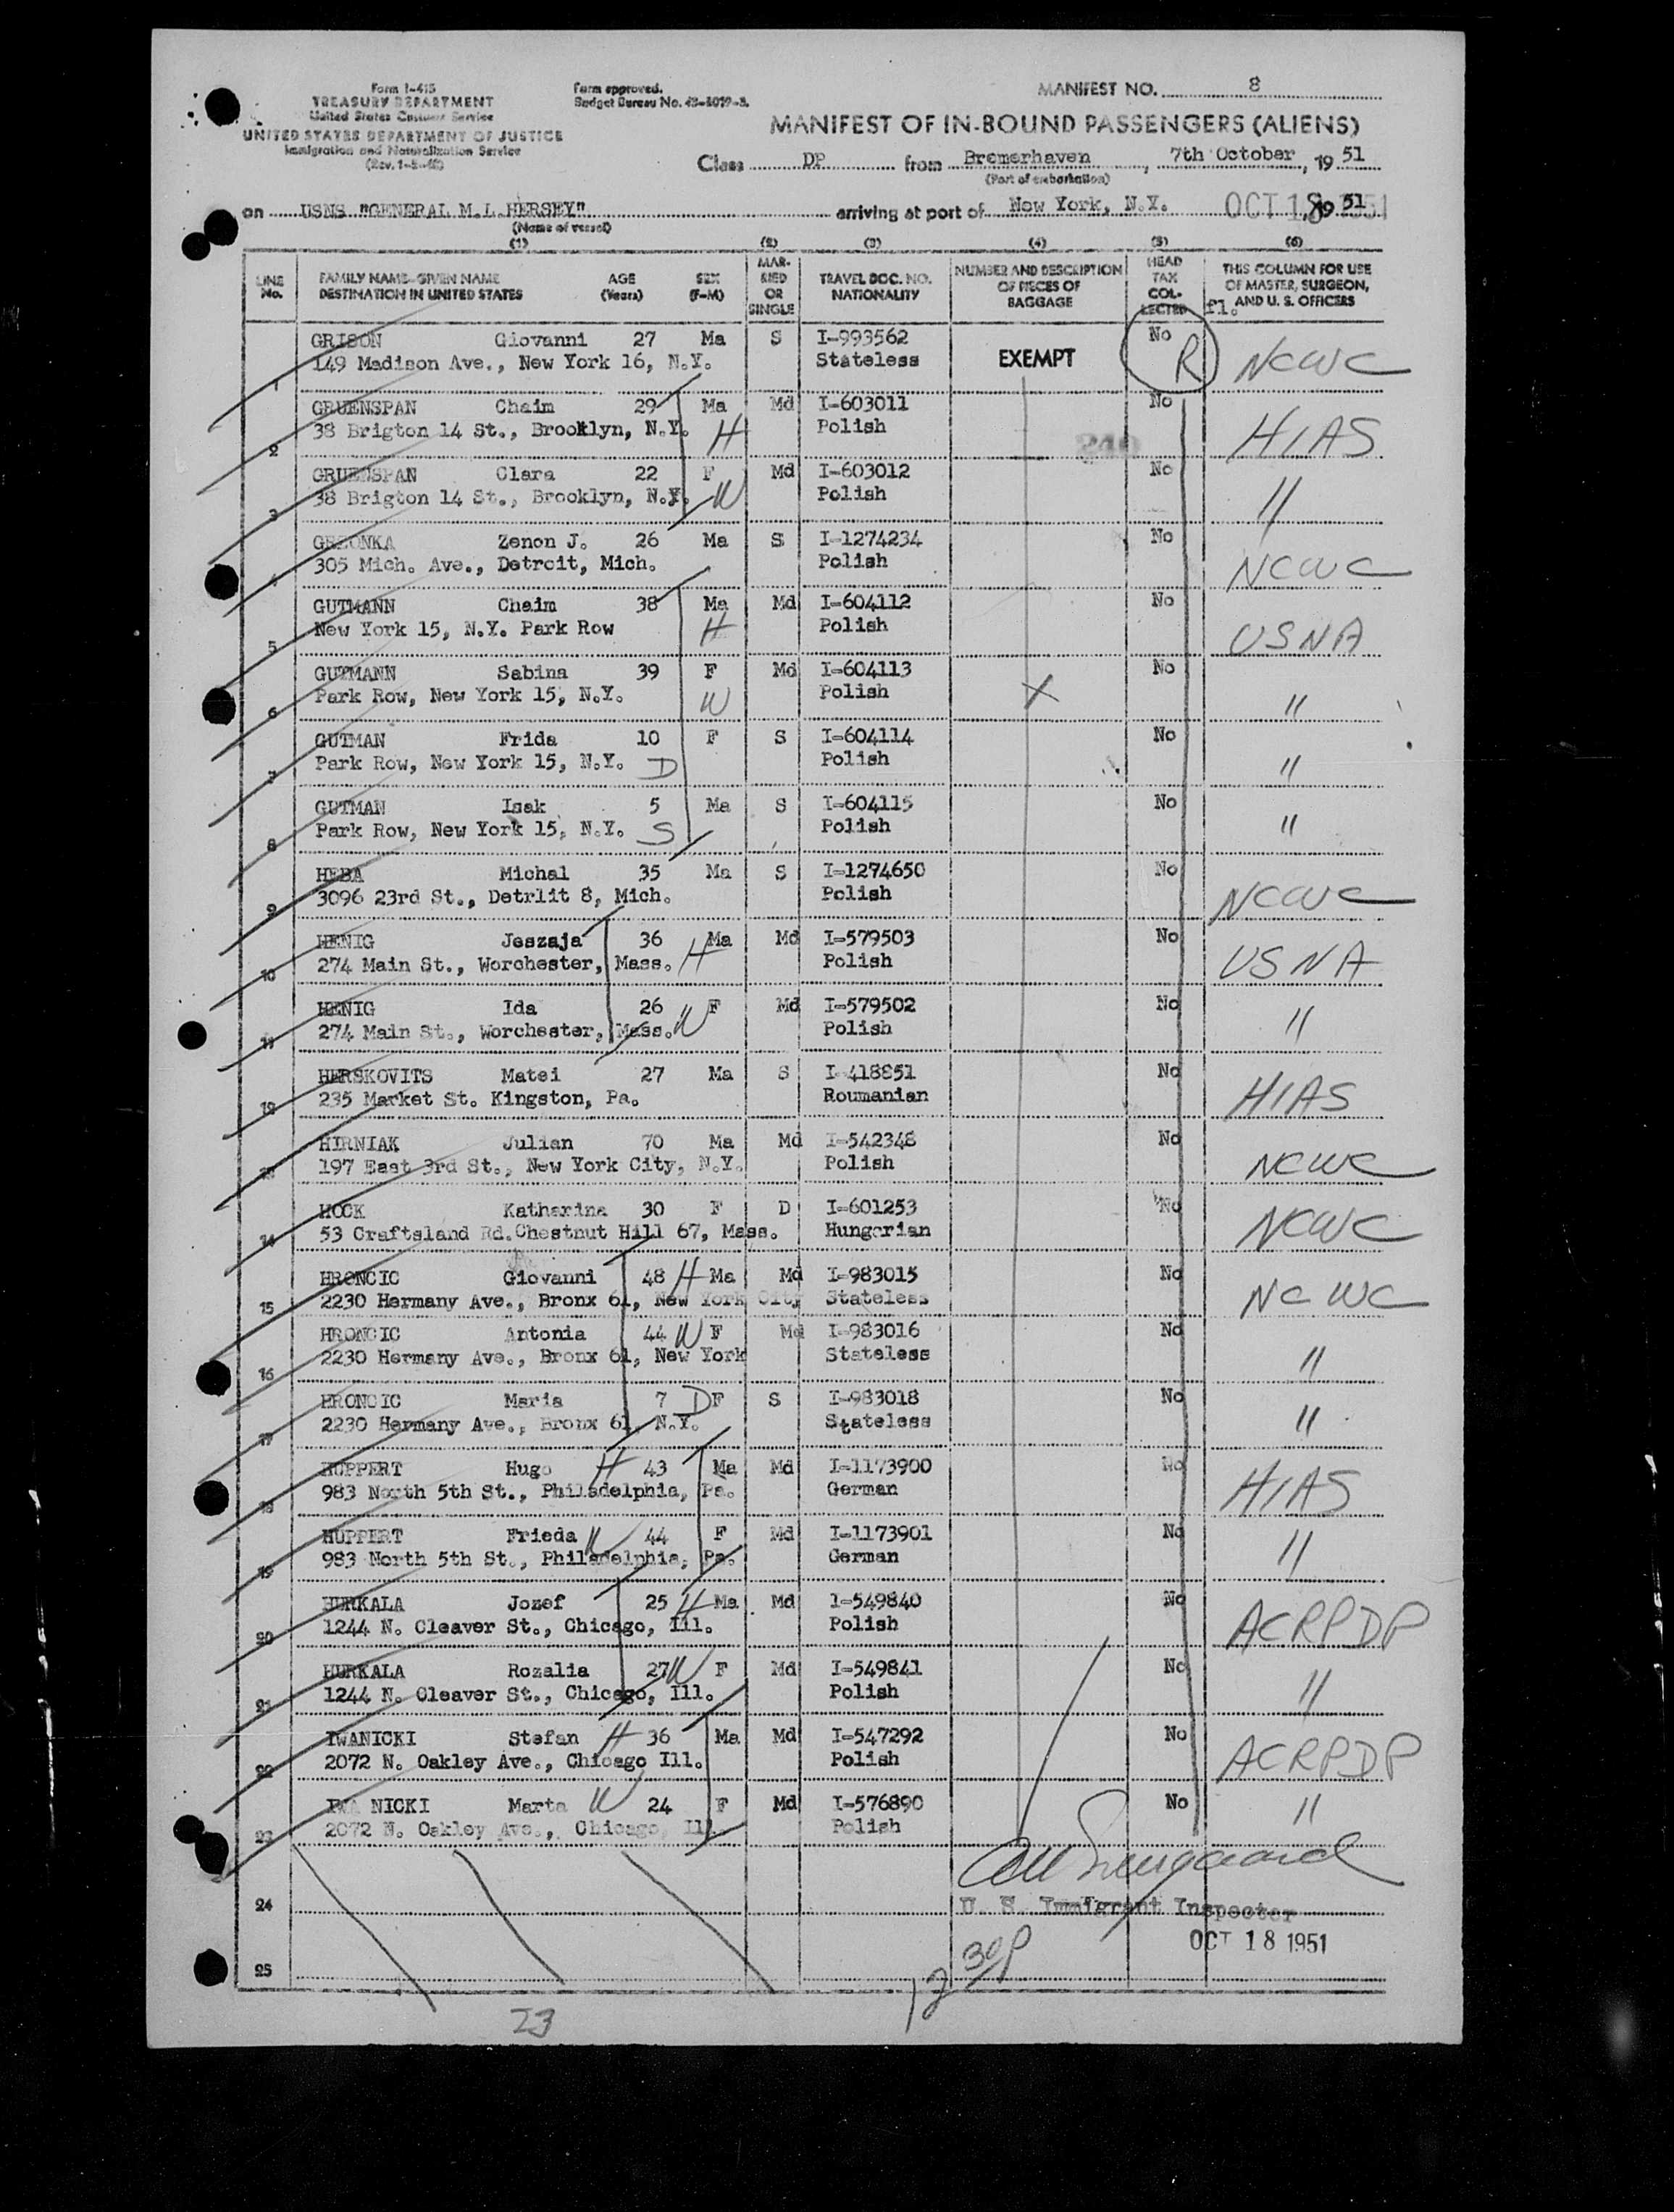 Form I-415
TREASURY DEPARTMENT
United States Customs Service
UNITED STATES DEPARTMENT OF JUSTICE
Immigration and Naturalization Service
Form approved.
Budget Bureau No. 43-R019-3.
MANIFEST NO. 8
MANIFEST OF IN-BOUND PASSENGERS (ALIENS)
Class DP from Bremerhaven, 7th October, 19 51
(Port of embarkation)
on USNS "GENERAL M.L.HERSEY" arriving at port of New York, N.Y. OCT 18 1951, 19 51
(Name of vessel)
(1) (2) (3) (4) (5) (6)
LINE No. FAMILY NAME-GIVEN NAME DESTINATION IN UNITED STATES AGE (Years) SEX (F-M) MARRIED OR SINGLE TRAVEL DOC. NO. NATIONALITY NUMBER AND DESCRIPTION OF PIECES OF BAGGAGE HEAD TAX COLLECTED THIS COLUMN FOR USE OF MASTER, SURGEON, AND U. S. OFFICERS
fl.
GRISON Giovanni 27 Ma S I-993562 No
1 149 Madison Ave., New York 16, N.Y. Stateless EXEMPT R NCWC
GRUENSPAN Chaim 29 Ma Md I-603011 No
2 38 Brigton 14 St., Brooklyn, N.Y. H Polish 240 HIAS
GRUENSPAN Clara 22 F Md I-603012 No
3 38 Brigton 14 St., Brooklyn, N.Y. W Polish "
GRZONKA Zenon J. 26 Ma S I-1274234 No
4 305 Mich. Ave., Detroit, Mich. Polish NCWC
GUTMANN Chaim 38 Ma Md I-604112 No
5 New York 15, N.Y. Park Row H Polish USNA
GUTMANN Sabina 39 F Md I-604113 No
6 Park Row, New York 15, N.Y. W Polish X "
GUTMAN Frida 10 F S I-604114 No
7 Park Row, New York 15, N.Y. D Polish "
GUTMAN Isak 5 Ma S I-604115 No
8 Park Row, New York 15, N.Y. S Polish "
HEBA Michal 35 Ma S I-1274650 No
9 3096 23rd St., Detrlit 8, Mich. Polish NCWC
HENIG Jeszaja 36 Ma Md I-579503 No
10 274 Main St., Worchester, Mass. H Polish USNA
HENIG Ida 26 F Md I-579502 No
11 274 Main St., Worchester, Mass. W Polish "
HERSKOVITS Matei 27 Ma S I-418851 No
12 235 Market St. Kingston, Pa. Roumanian HIAS
HIRNIAK Julian 70 Ma Md I-542348 No
13 197 East 3rd St., New York City, N.Y. Polish NCWC
HOCK Katharina 30 F D I-601253 No
14 53 Craftsland Rd.Chestnut Hill 67, Mass. Hungarian NCWC
HRONCIC Giovanni 48 H Ma Md I-983015 No
15 2230 Hermany Ave., Bronx 61, New York City Stateless NCWC
HRONCIC Antonia 44 W F Md I-983016 No
16 2230 Hermany Ave., Bronx 61, New York Stateless "
HRONCIC Maria 7 D F S I-983018 No
17 2230 Hermany Ave., Bronx 61, N.Y. Stateless "
HUPPERT Hugo H 43 Ma Md I-1173900 No
18 983 North 5th St., Philadelphia, Pa. German HIAS
HUPPERT Frieda W 44 F Md I-1173901 No
19 983 North 5th St., Philadelphia, Pa. German "
HURKALA Jozef 25 H Ma Md I-549840 No
20 1244 N. Cleaver St., Chicago, Ill. Polish ACRPDP
HURKALA Rozalia 27 W F Md I-549841 No
21 1244 N. Cleaver St., Chicago, Ill. Polish "
IWANICKI Stefan H 36 Ma Md I-547292 No
22 2072 N. Oakley Ave., Chicago Ill. Polish ACRPDP
IWA NICKI Marta W 24 F Md I-576890 No
23 2072 N. Oakley Ave., Chicago, Ill. Polish "
24 U. S. Immigrant Inspector
OCT 18 1951
25
23